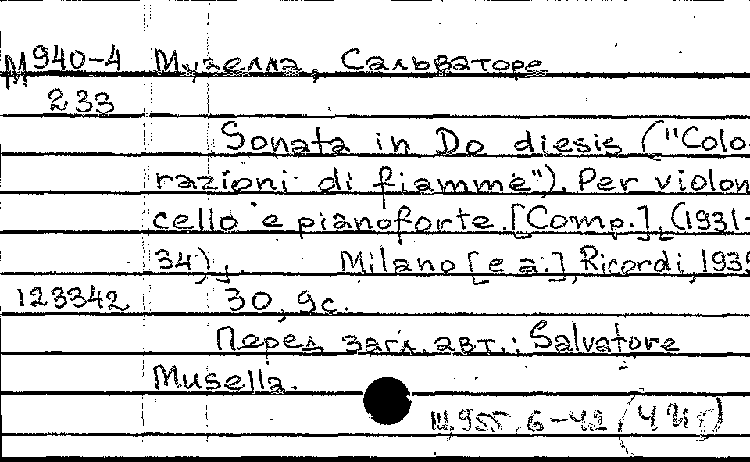 М940-4 Музелла, Сальваторе
233
Sonata in Do diesis ("Colo-
razioni di fiamme"). Per violon
cello e pianoforte. [Comp.], (1931-
34). Milano [e a.], Ricordi, 1935
123342 30, 9с.
Перед загл. авт.: Salvatore
Musella.
Ш,955, 6-42